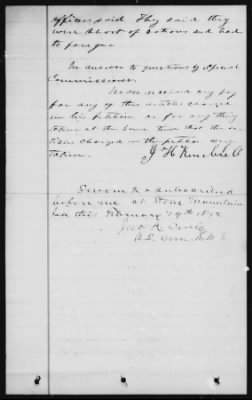 officers said. They said they
were short of rations and had
to forage.
In answer to questions by Special
Commissioner.
Never received any pay
for any of the articles charged
in his petition or for any thing
taken at the same time that the ar-
ticles charged in the petition were
taken.
J H Kimball
Sworn to & subscribed
before me at Stone Mountain
Ga this February 29th 1872